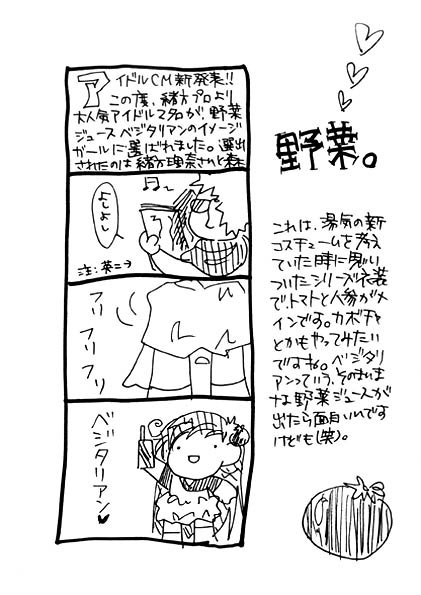 野菜。
アイドルCM新発表!!
この度、緒方プロより
大人気アイドル2名が、野菜
ジュースベジタリアンのイメージ
ガールに選ばれました。選出
されたのは緒方理奈さんと森
よしよし
注:英二→
フリ
フリフリ
フリ
ベジタリアン♥
これは、湯気の新
コスチュームを考え
ていた時に思い
ついたシリーズ衣装
で、トマトと人参がメ
インです。カボチャ
とかもやってみたい
ですね。ベジタリ
アンっていう、そのまんま
な野菜ジュースが
出たら面白いんです
けども(笑)。